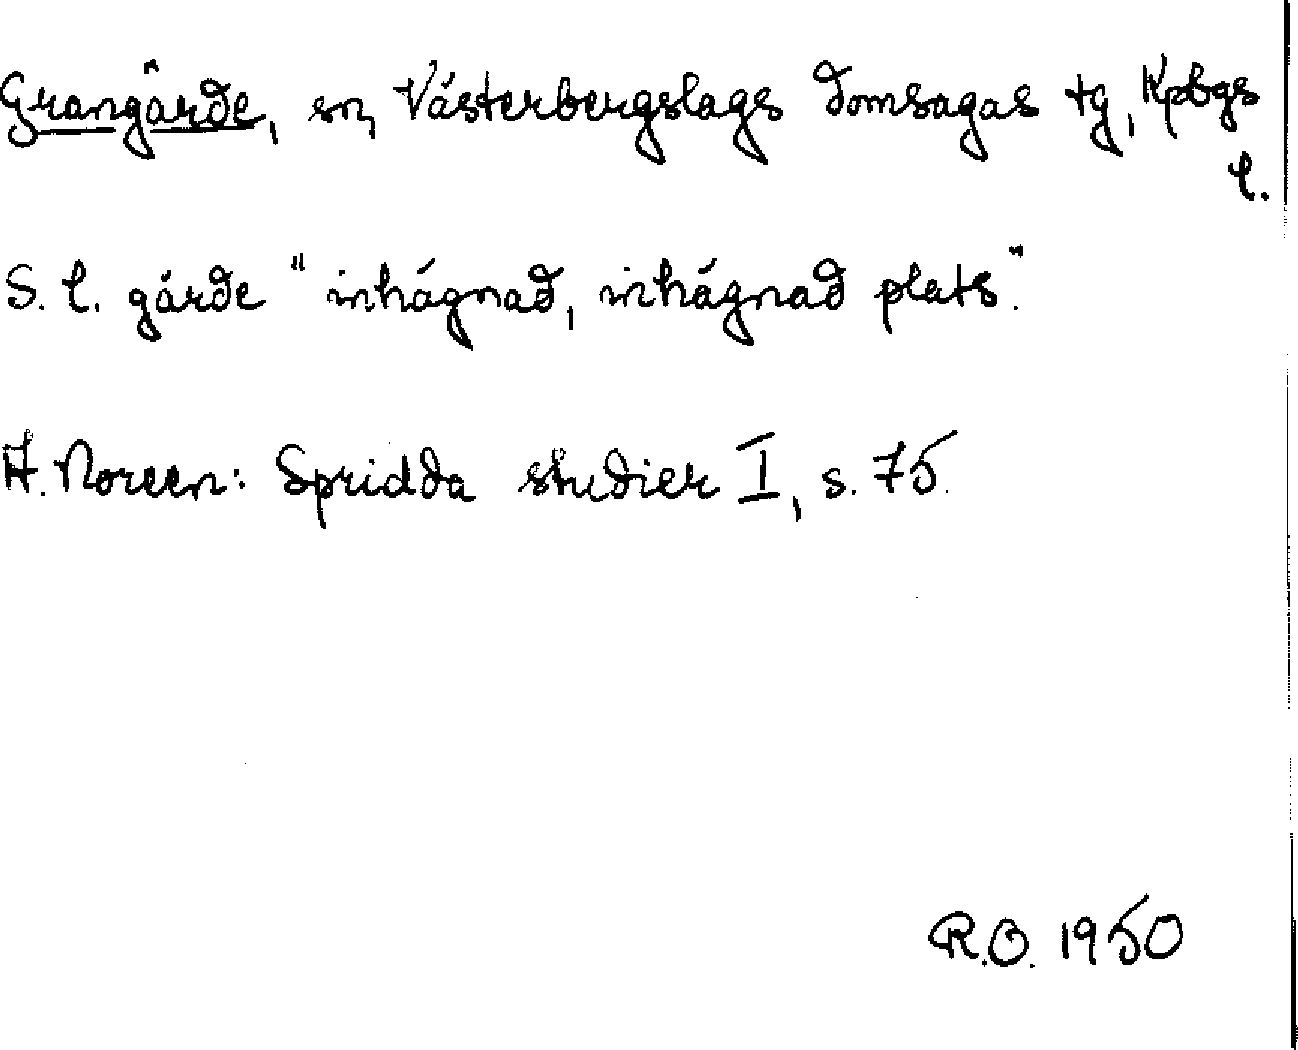 Grangärde, sn, Västerbergslags domsagas tg, Kpbgs
l.
S. l. gärde "inhägnad, inhägnad plats."
A. Noreen: Spridda studier I, s. 75.
R.O. 1950